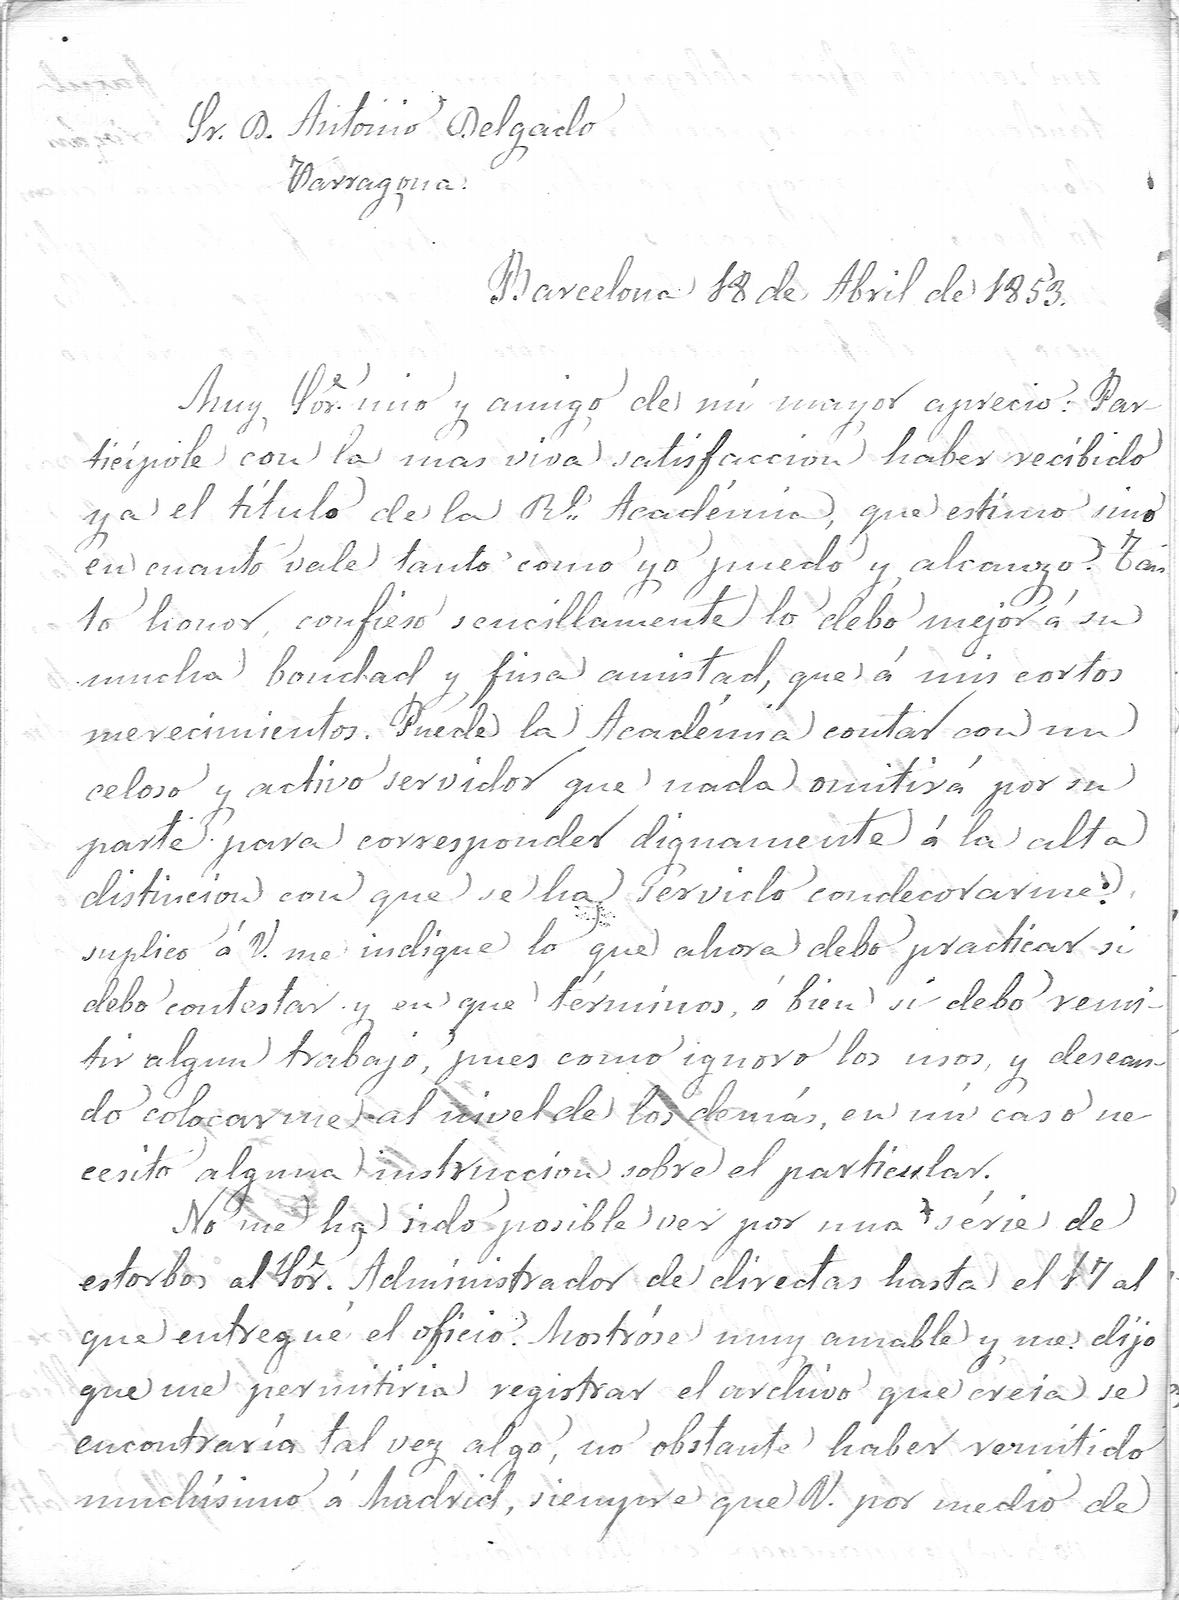 Sr. D. Antonio Delgado
Tarragona.
Barcelona 18 de Abril de 1853.
Muy Sor. mio y amigo de mi mayor aprecio: Par-
ticípole con la mas viva satisfaccion haber recibido
ya el título de la Rl. Académia, que estimo sino
en cuanto vale tanto como yo puedo y alcanzo. Tan
to honor, confieso sencillamente lo debo mejor á su
mucha bondad y fina amistad, que á mis cortos
merecimientos. Puede la Académia contar con un
celoso y activo servidor que nada omitirá por su
parte para corresponder dignamente á la alta
distincion con que se ha servido condecorarme:
suplico á V. me indique lo que ahora debo practicar si
debo contestar y en que términos, ó bien si debo remi-
tir algun trabajo, pues como ignoro los usos, y desean-
do colocarme al nivel de los demás, en mi caso ne
cesito alguna instruccion sobre el particular.
No me ha sido posible ver por una série de
estorbos al Sor. Administrador de directas hasta el 17 al
que entregué el oficio. Mostróse muy amable y me dijo
que me permitiria registrar el archivo que creia se
encontraría tal vez algo, no obstante haber remitido
muchísimo á Madrid, siempre que V. por medio de